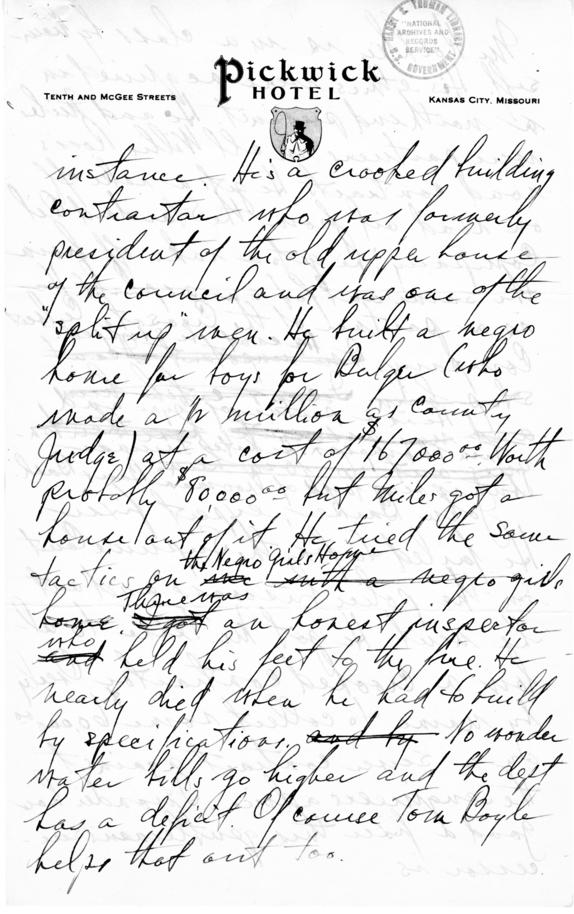 HARRY S. TRUMAN LIBRARY
"NATIONAL
ARCHIVES AND
RECORDS
SERVICE"
U.S. GOVERNMENT
Pickwick
HOTEL
TENTH AND MCGEE STREETS
KANSAS CITY, MISSOURI
instance. He's a crooked building
contractor who was formerly
president of the old upper house
of the council and was one of the
"split up" men. He built a negro
home for boys for Bulger (who
made a ½ million as County
Judge) at a cost of $167000⁰⁰ Worth
probably $80,000⁰⁰ but Miles got a
house out of it. He tried the same
the Negro Girls Home
tactics on me with a negro girls
There was
home. I got an honest inspector
who
and held his feet to the fire. He
nearly died when he had to build
by specifications. and by No wonder
water bills go higher and the dept
has a deficit. Of course Tom Boyle
helps that out too.